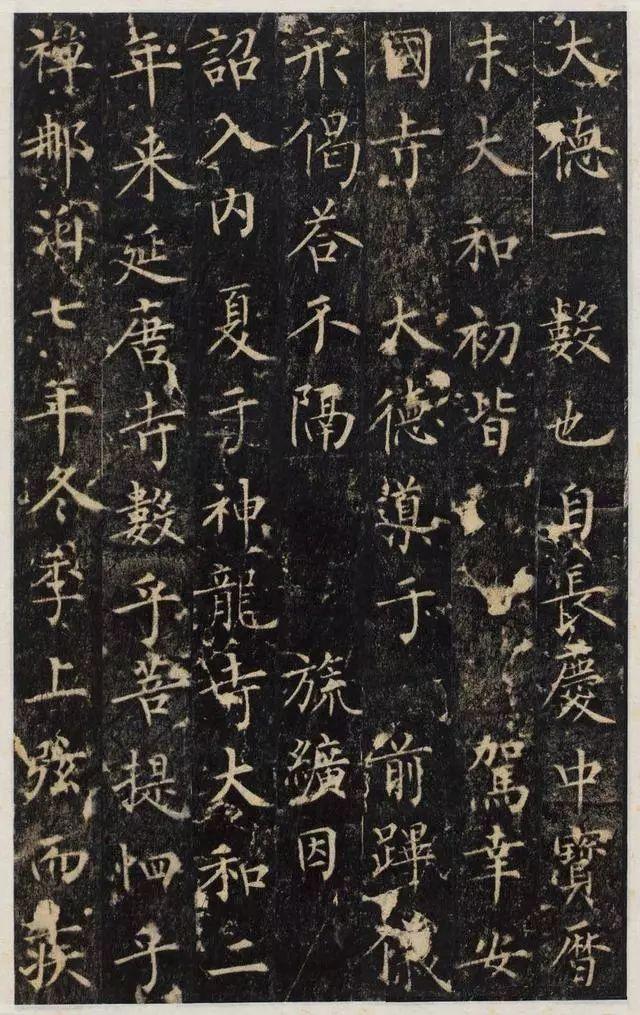 大德一數也自長慶中寶曆
末大和初皆駕幸安
國寺大德導于前蹕儀
形偈荅不隔旒纊因
詔入內夏于神龍寺大和二
年来延唐寺數乎菩提恤乎
禅那洎七年冬季上弦而疾